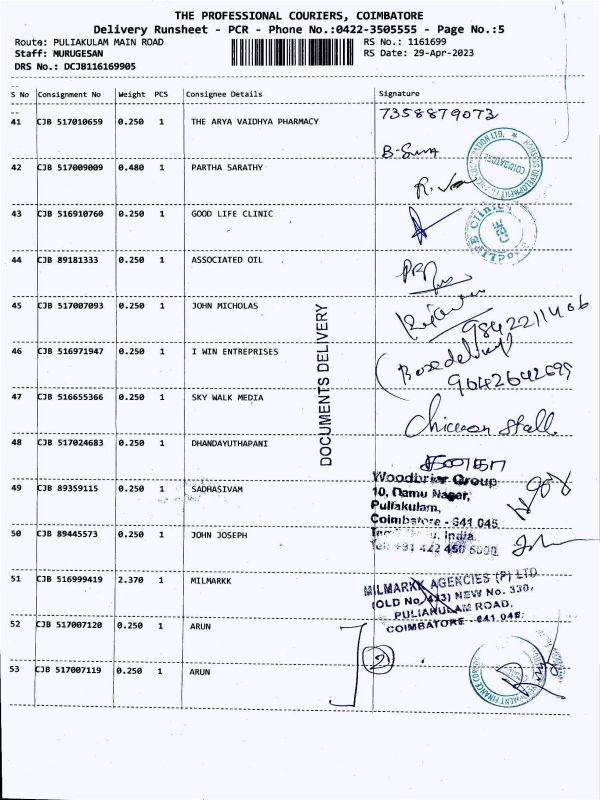 THE PROFESSIONAL COURIERS, COIMBATORE
Delivery Runsheet - PCR - Phone No.:0422-3505555 - Page No.:5
Route: PULIAKULAM MAIN ROAD RS No.: 1161699
Staff: MURUGESAN RS Date: 29-Apr-2023
DRS No.: DCJB116169905
S No Consignment No Weight PCS Consignee Details Signature
7358879073
41 CJB 517010659 0.250 1 THE ARYA VAIDHYA PHARMACY
42 CJB 517009009 0.480 1 PARTHA SARATHY
43 CJB 516910760 0.250 1 GOOD LIFE CLINIC
44 CJB 89181333 0.250 1 ASSOCIATED OIL
45 CJB 517007093 0.250 1 JOHN MICHOLAS
9842211406
46 CJB 516971947 0.250 1 I WIN ENTREPRISES
9042642699
47 CJB 516655366 0.250 1 SKY WALK MEDIA
DOCUMENTS DELIVERY
48 CJB 517024683 0.250 1 DHANDAYUTHAPANI
Woodbriar Group
49 CJB 89359115 0.250 1 SADHASIVAM
10, Damu Nagar,
Puliakulam,
Coimbatore - 641 045
50 CJB 89445573 0.250 1 JOHN JOSEPH
India.
Tel: +91 422 450 5000
51 CJB 516999419 2.370 1 MILMARKK
MILMARKK AGENCIES (P) LTD
(OLD No. 423) NEW No. 330,
PULIAKULAM ROAD,
COIMBATORE - 641 045.
52 CJB 517007120 0.250 1 ARUN
2
53 CJB 517007119 0.250 1 ARUN